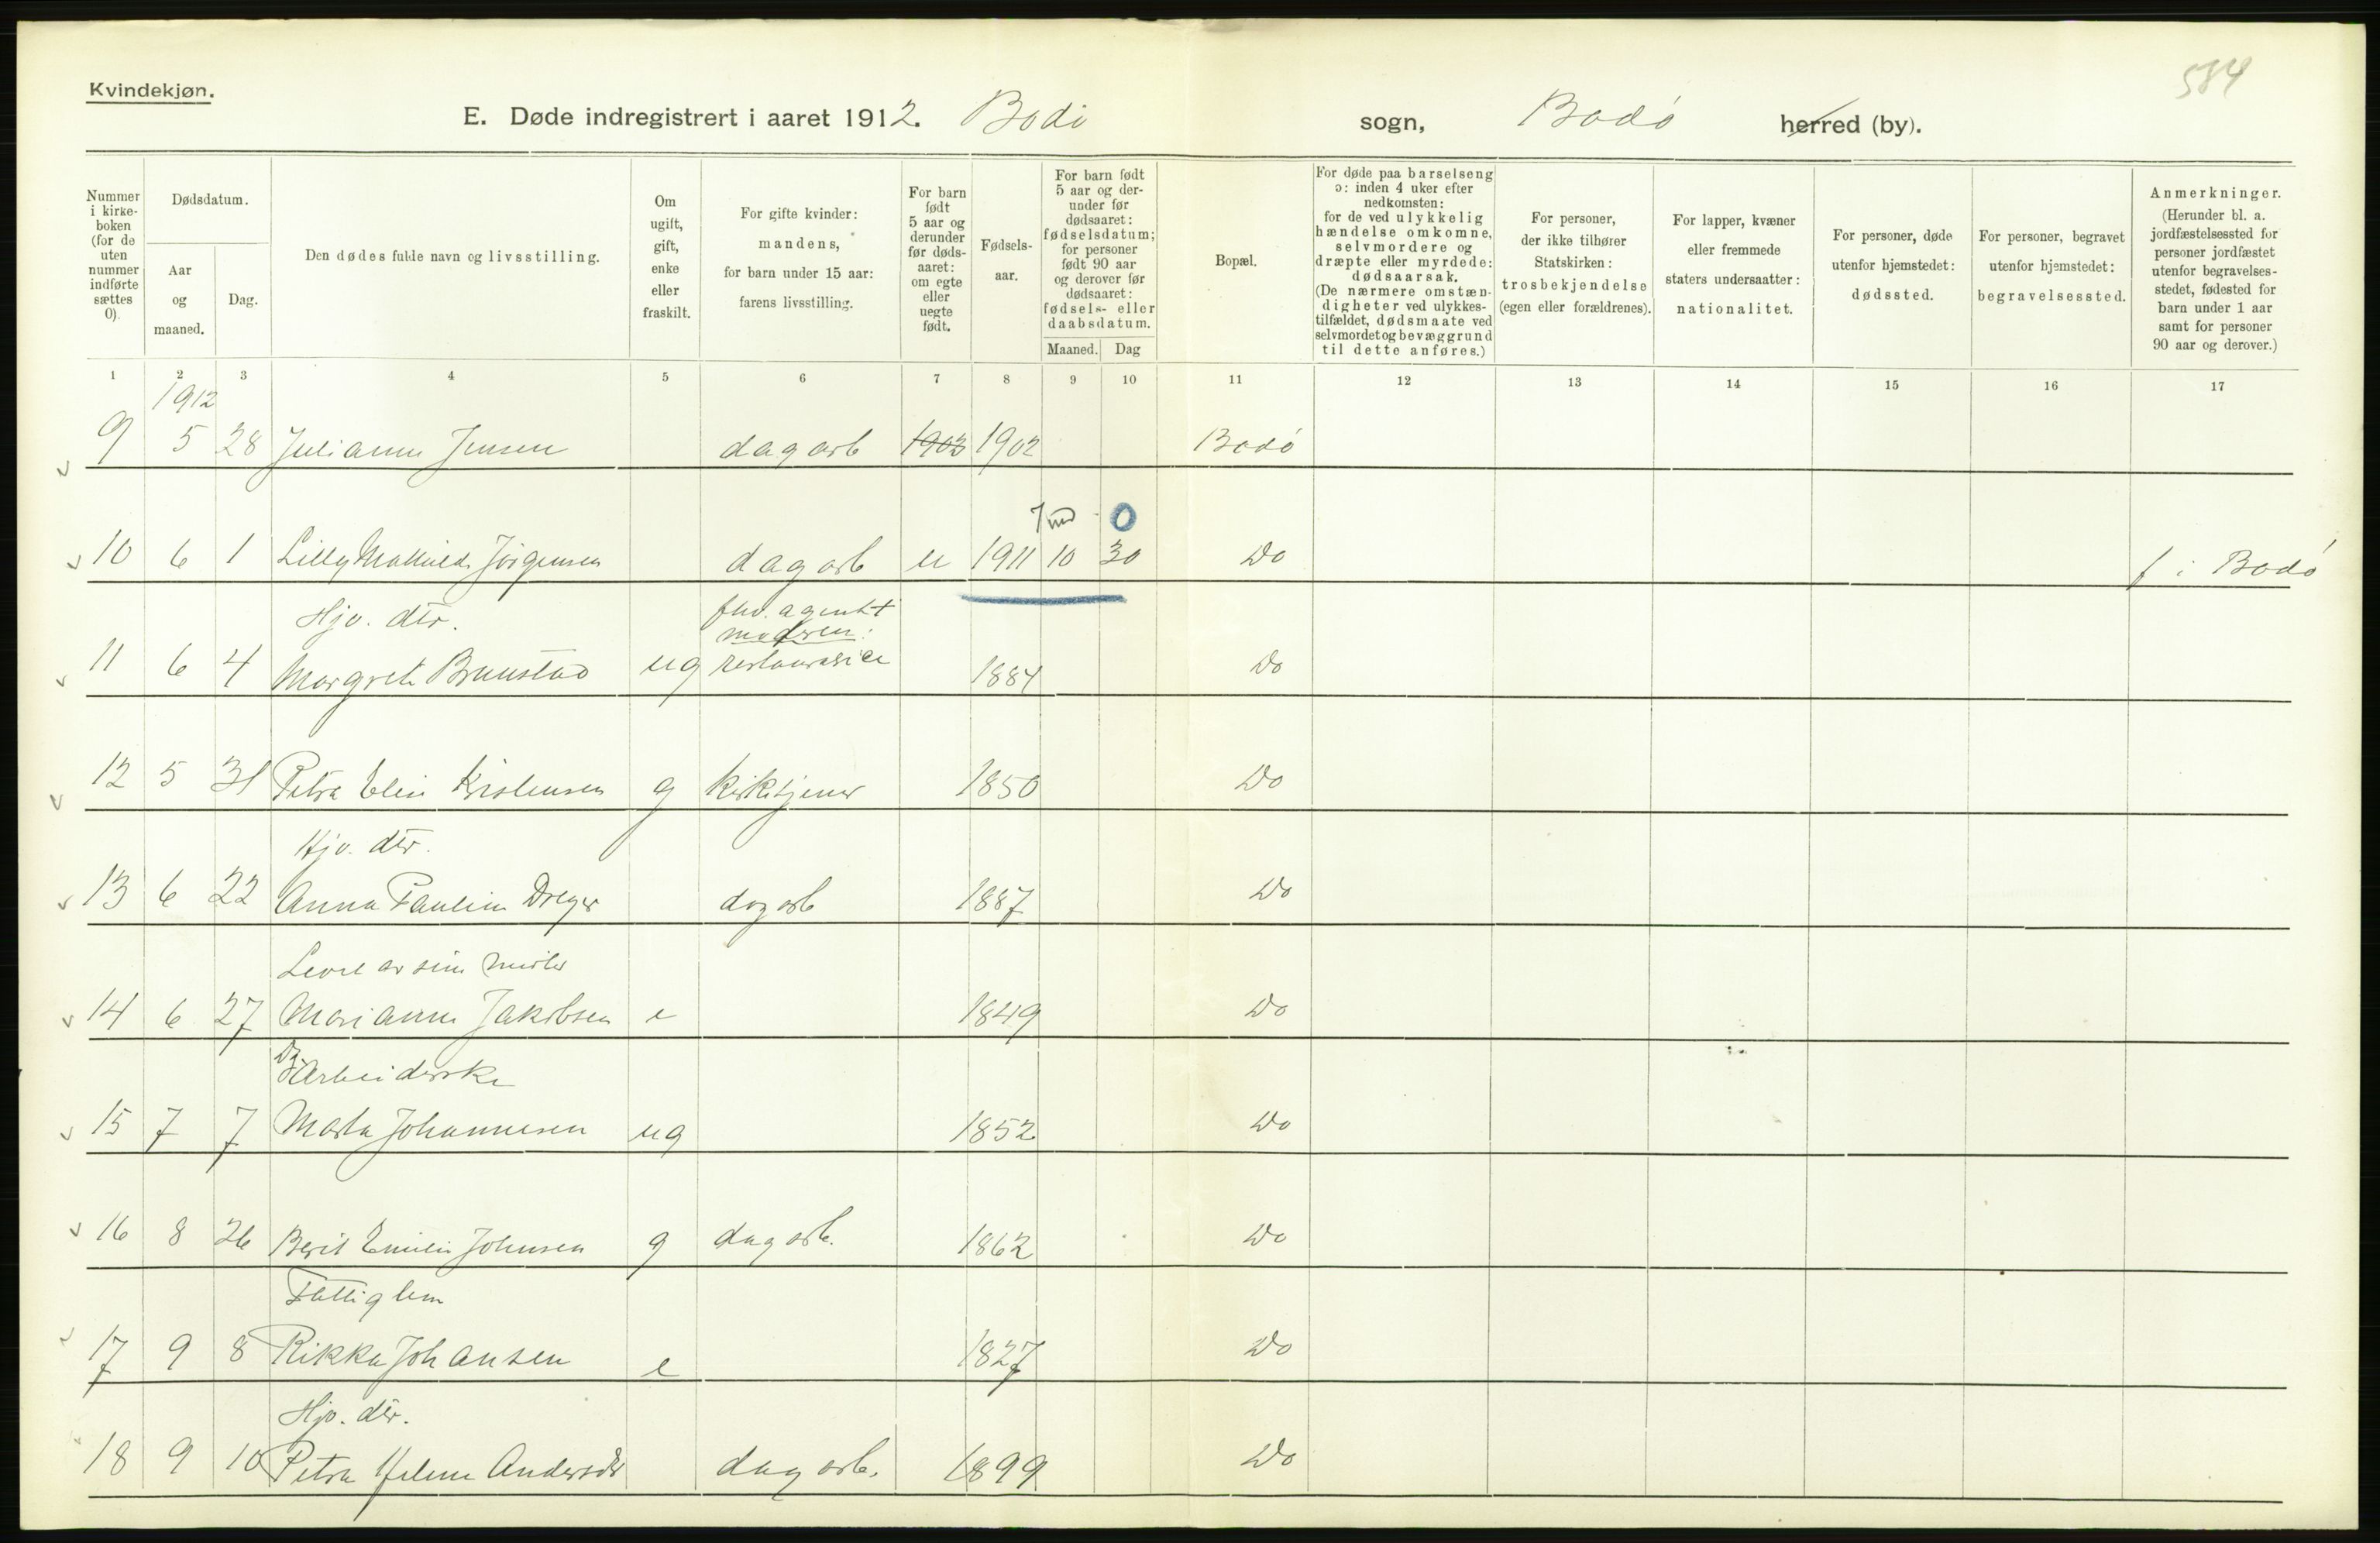 584
Kvindekjøn.
E. Døde indregistrert i aaret 1912. Bodø sogn, Bodø herred (by).
Nummer i kirkeboken (for de uten nummer indførte sættes 0).
Dødsdatum.
Aar og maaned.
Dag.
Den dødes fulde navn og livsstilling.
Om ugift, gift, enke eller fraskilt.
For gifte kvinder: mandens, for barn under 15 aar: farens livsstilling.
For barn født 5 aar og derunder før dødsaaret: om egte eller uegte født.
Fødselsaar.
For barn født 5 aar og derunder før dødsaaret: fødselsdatum; for personer født 90 aar og derover før dødsaaret: fødsels- eller daabsdatum.
Maaned. Dag
Bopæl.
For døde paa barselseng ɔ: inden 4 uker efter nedkomsten: for de ved ulykkelig hændelse omkomne, selvmordere og dræpte eller myrdede: dødsaarsak. (De nærmere omstændigheter ved ulykkestilfældet, dødsmaate ved selvmordet og bevæggrund til dette anføres.)
For personer, der ikke tilhører Statskirken: trosbekjendelse (egen eller forældrenes).
For lapper, kvæner eller fremmede staters undersaatter: nationalitet.
For personer, døde utenfor hjemstedet: dødssted.
For personer, begravet utenfor hjemstedet: begravelsessted.
Anmerkninger. (Herunder bl. a. jordfæstelsessted for personer jordfæstet utenfor begravelsesstedet, fødested for barn under 1 aar samt for personer 90 aar og derover.)
1 2 3 4 5 6 7 8 9 10 11 12 13 14 15 16 17
1912
9 5 28 Julianne Jensen dagarb 1902 1902 Bodø
7 md 0
10 6 1 Lilly Mathilde Jørgensen dagarb u 1911 10 30 Do f i Bodø
Hjv. dtr. fhv. agent +
moderen:
11 6 4 Margrete Brunstad ug 1884 Do
12 5 31 Petra Elise Kristensen g kirketjener 1850 Do
Hjv. dtr.
13 6 22 Anna Pauline Dreyer dagarb 1887 Do
Levet av sine midler
14 6 27 Marianne Jakobsen e 1849 Do
Arbeiderske
15 7 7 Marta Johannesen ug 1852 Do
16 8 26 Berit Emilie Johnsen g dagarb. 1862 Do
Fattiglem
17 9 8 Rikka Johansen e 1827 Do
Hjv. dtr.
18 9 10 Petra Helene Andersdtr dagarb. 1899 Do